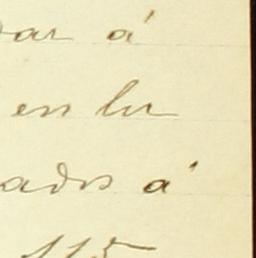 dar á
en la
ados á
115